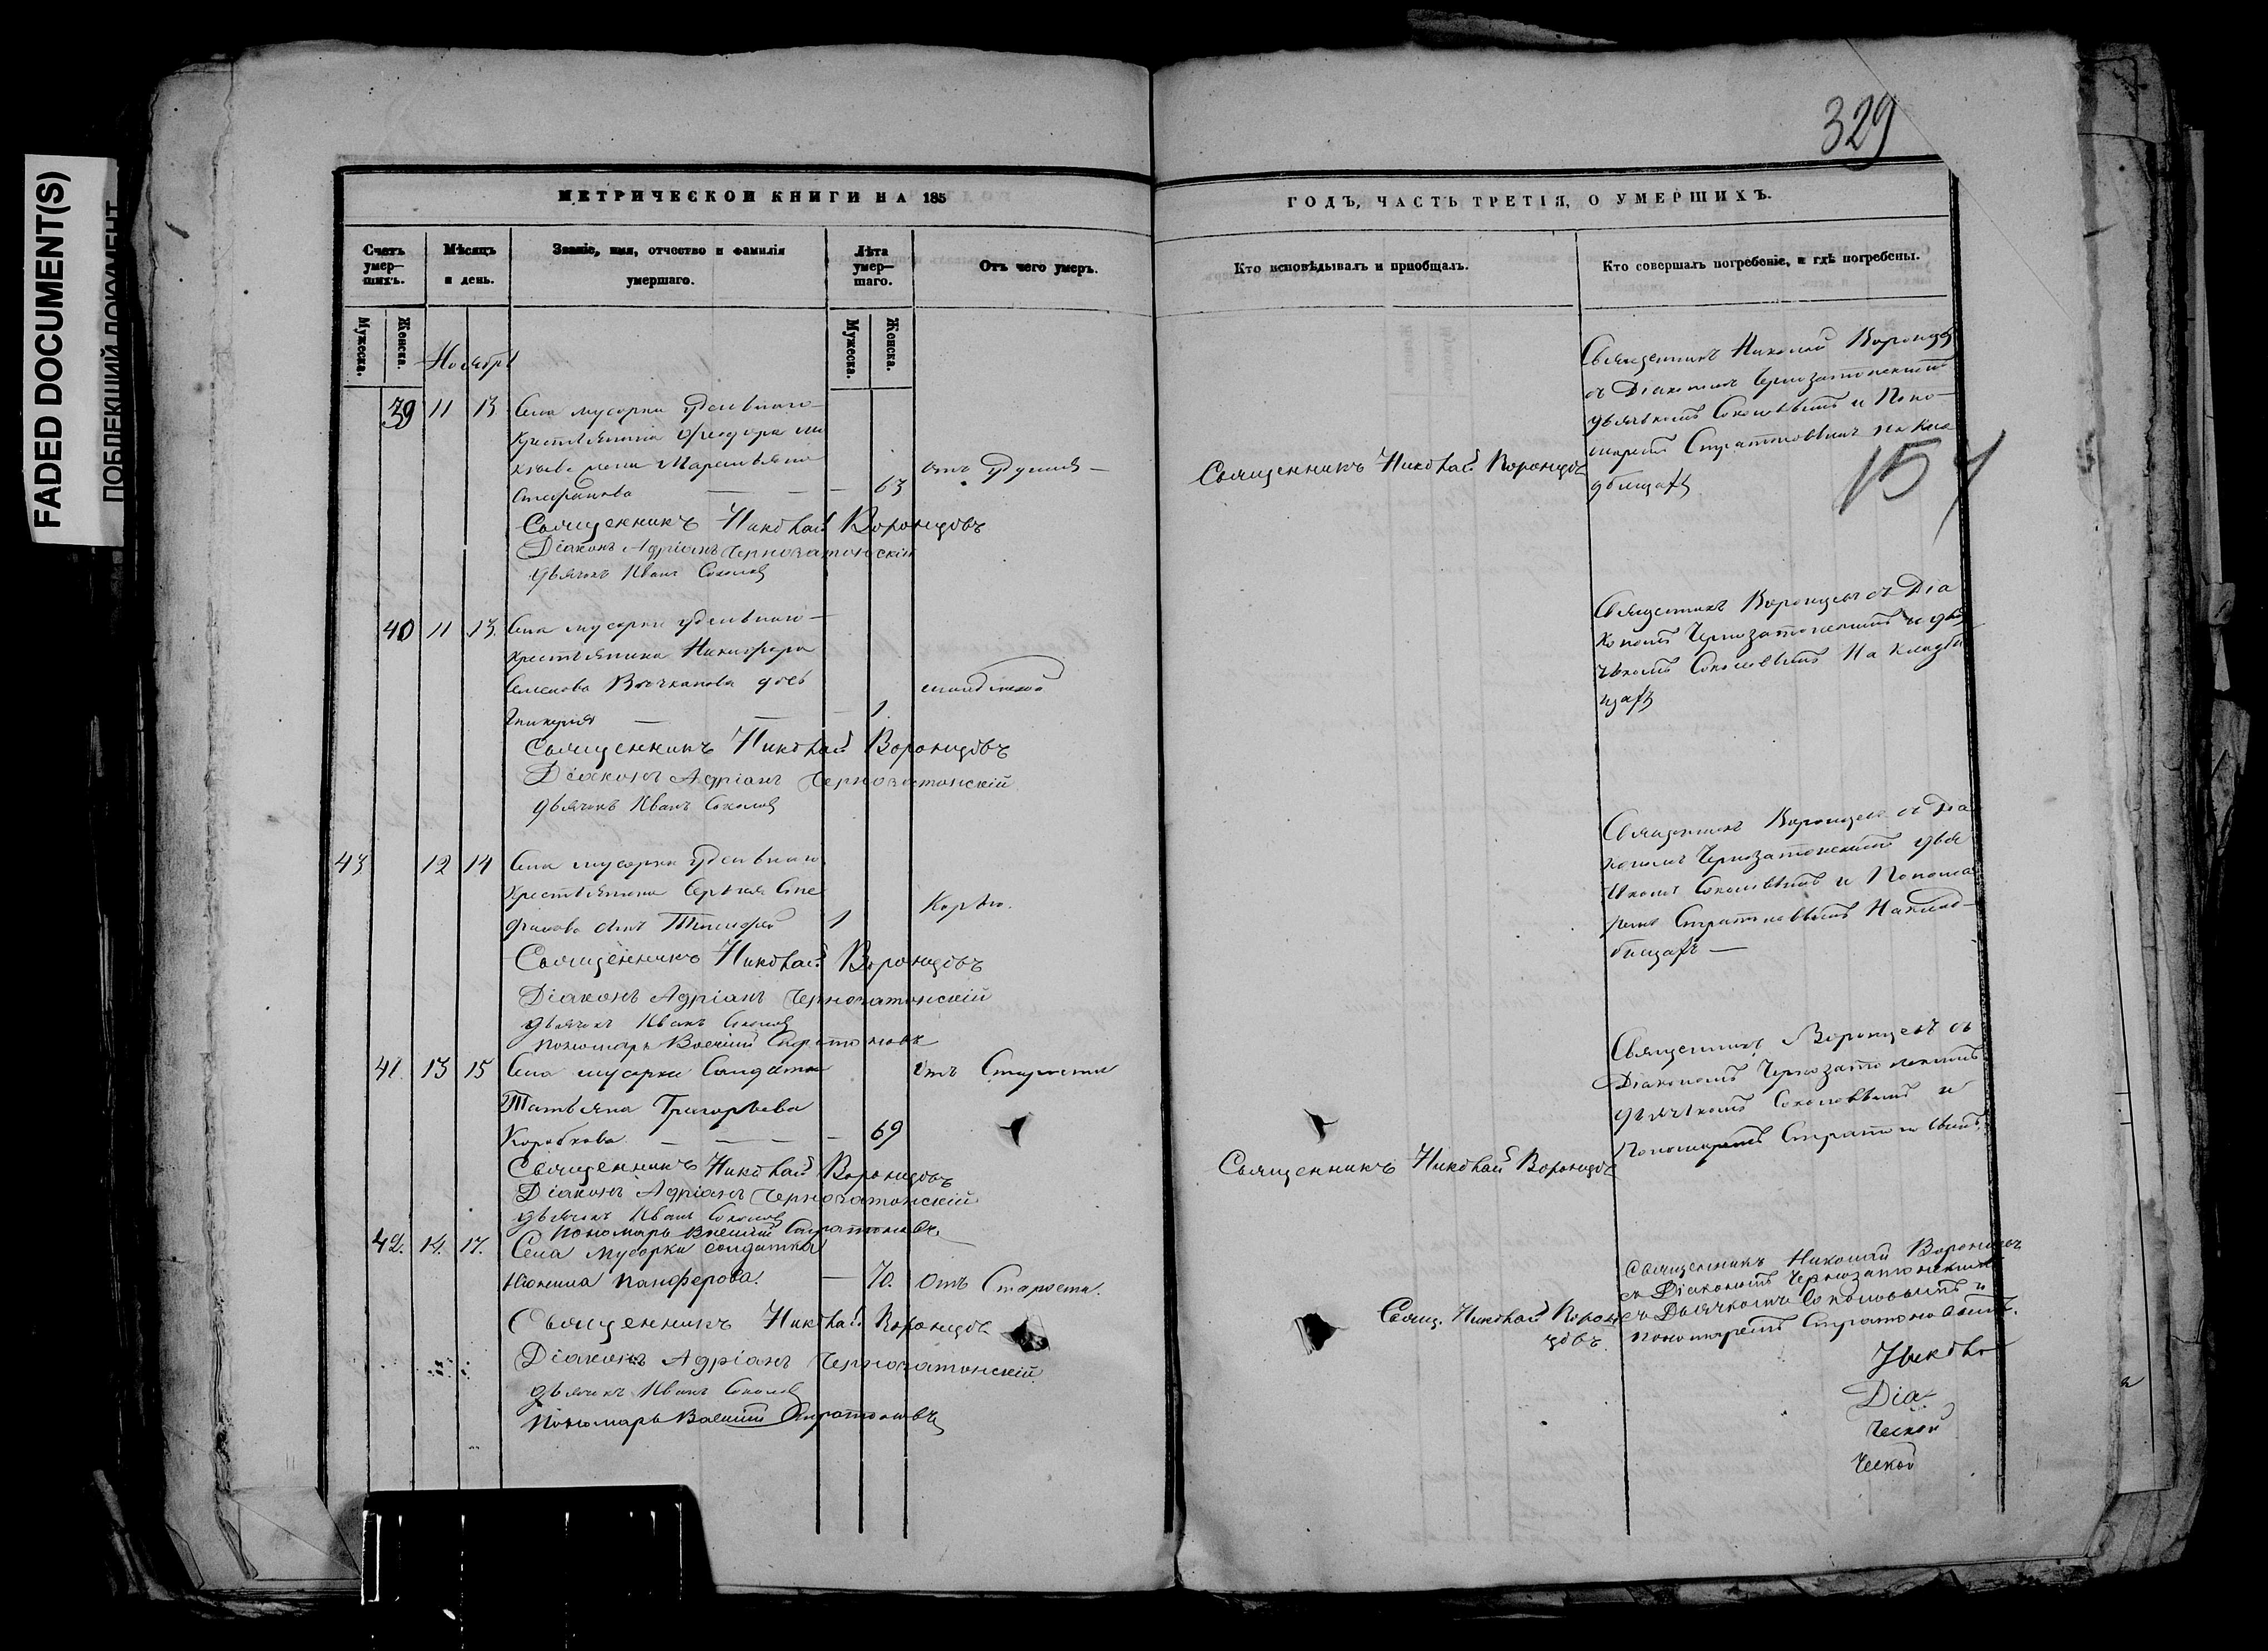 FADED DOCUMENT(S)
ПОБЛЕКШИЙ ДОКУМЕНТ
329
МЕТРИЧЕСКОЙ КНИГИ НА 185
ГОДЪ, ЧАСТЬ ТРЕТІЯ, О УМЕРШИХЪ.
Счетъ умер—шихъ.
Мѣсяцъ и день.
Званіе, имя, отчество и фамилія умершаго.
Лѣта умер—шаго.
Отъ чего умеръ.
Кто исповѣдывалъ и пріобщалъ.
Кто совершалъ погребеніе, и гдѣ погребены.
Мужеска.
Женска.
Мужеска.
Женска.
Ноябрь
39 11 13 Села мусорки удельнаго
крестьянина Феодора
жена
63
Священникъ Николай Воронцовъ
Діаконъ Адріанъ Чернозатонскій
дьячокъ Иванъ Соколов
Священникъ Николай Воронцов
Священникъ Николай Воронцов
съ Діакономъ Чернозатонскимъ
дьячкомъ Соколовымъ и Поно—
маремъ Стратоновымъ на кла
дбищахъ
157
40 11 13. Села мусорки удельнаго
крестьянина Никифора
Семенова дочь
Гликерія — — — 1.
Священникъ Николай Воронцовъ
Діаконъ Адріанъ Чернозатонскій
дьячокъ Иванъ Соколов
Священникъ Воронцовъ съ Діа
кономъ Чернозатонскимъ и дья
чкомъ Соколовымъ На кладби
щахъ
43 12 14 Села мусорки удельнаго
крестьянина Сергея Сте
фанова сынъ Тимофей 1
Корью.
Священникъ Николай Воронцовъ
Діаконъ Адріанъ Чернозатонскій
дьячокъ Иванъ Соколов
пономарь Василій Стратоновъ
Священникъ Воронцовъ съ Діа
кономъ Чернозатонскимъ дья
чкомъ Соколовымъ и Понома
ремъ Стратоновымъ На клад—
бищахъ —
41. 13 15 Села мусорки Солдатка
Татьяна Григорьева
Коробкова — — — 69
отъ Старости
Священникъ Николай Воронцовъ
Діаконъ Адріанъ Чернозатонскій
дьячокъ Иванъ Соколов
пономарь Василій Стратоновъ
Священникъ Николай Воронцов
Священникъ Воронцовъ съ
Діакономъ Чернозатонскимъ
дьячкомъ Соколовымъ и
Пономаремъ Стратоновымъ.
42. 14. 17. Села Мусорки солдатка
панферова. — 70. Отъ Старости.
Священникъ Николай Воронцов
Діаконъ Адріанъ Чернозатонскій
дьячокъ Иванъ Соколов
пономарь Василій Стратоновъ
Свящ. Николай Ворон
цовъ.
Священникъ Николай Воронцовъ
съ Діакономъ Чернозатонскимъ
съ Дьячкомъ Соколовымъ и
пономаремъ Стратоновымъ.
Діа
ческой
ческой